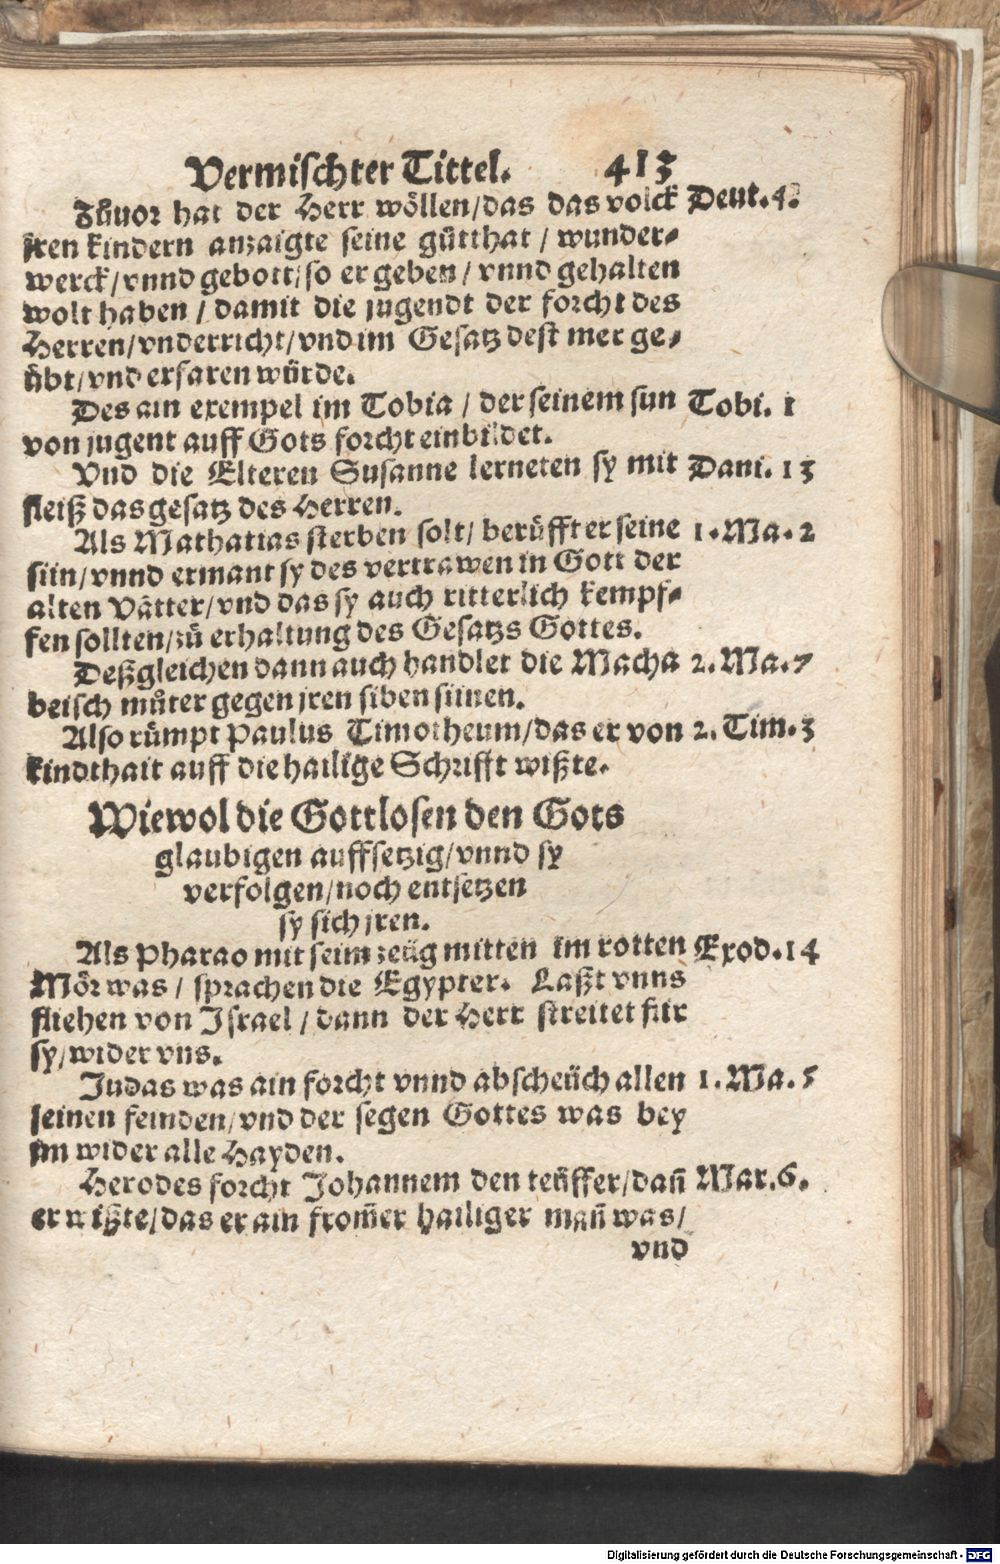 Vermischter Tittel. 413
Zůuor hat der Herr wöllen/das das volck Deut. 4.
jren kindern anzaigte seine gůtthat / wunder-
werck/vnnd gebott/so er geben / vnnd gehalten
wolt haben / damit die jugendt der forcht des
Herren/vnderricht/vnd im Gesatz dest mer ge-
übt/vnd erfaren würde.
Des ain exempel im Tobia / der seinem sun Tobi. 1
von jugent auff Gots forcht einbildet.
Vnd die Elteren Susanne lerneten sy mit Dani. 13
fleiß das gesatz des Herren.
Als Mathatias sterben solt/ berüfft er seine 1. Ma. 2
sün/vnnd ermant sy des vertrawen in Gott der
alten Vätter/vnd das sy auch ritterlich kempf-
fen sollten/zů erhaltung des Gesatzs Gottes.
Deßgleichen dann auch handlet die Macha 2. Ma. 7
beisch můter gegen jren siben sünen.
Also rümpt Paulus Timotheum/das er von 2. Tim. 3
kindthait auff die hailige Schrifft wißte.
Wiewol die Gottlosen den Gots
glaubigen auffsetzig/vnnd sy
verfolgen/noch entsetzen
sy sich jren.
Als Pharao mit seim zeüg mitten im rotten Exod. 14
Mör was / sprachen die Egypter. Laßt vnns
fliehen von Israel / dann der Herr streitet für
sy/wider vns.
Judas was ain forcht vnnd abscheüch allen 1. Ma. 5
seinen feinden/vnd der segen Gottes was bey
jm wider alle Hayden.
Herodes forcht Johannem den teüffer/dañ Mar. 6.
er wißte/das er ain from̃er hailiger mañ was/
vnd
Digitalisierung gefördert durch die Deutsche Forschungsgemeinschaft - DFG